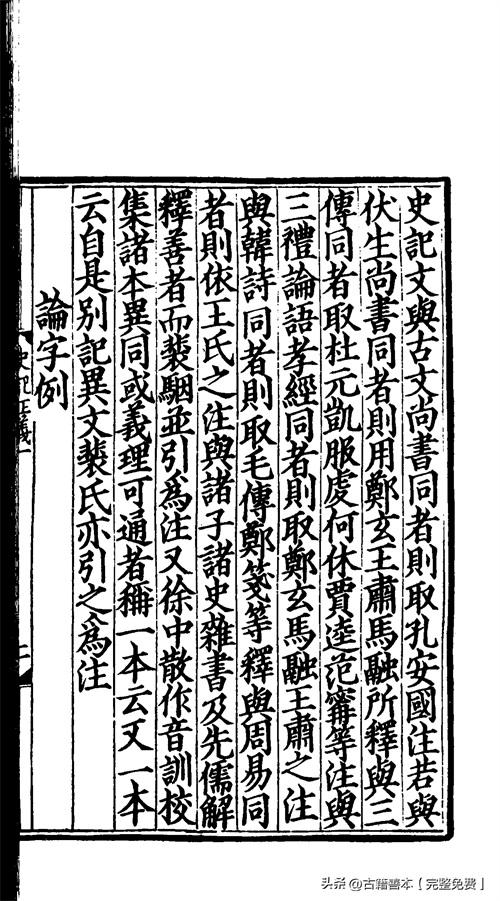 史記文與古文尚書同者則取孔安國注若與
伏生尚書同者則用鄭玄王肅馬融所釋與三
傳同者取杜元凱服虔何休賈逵范甯等注與
三禮論語孝經同者則取鄭玄馬融王肅之注
與韓詩同者則取毛傳鄭箋等釋與周易同
者則依王氏之注與諸子諸史雜書及先儒解
釋善者而裴駰並引爲注又徐中散作音訓校
集諸本異同或義理可通者稱一本云又一本
云自是別記異文裴氏亦引之爲注
論字例
史記正義一
頭条 @古籍善本【完整免费】